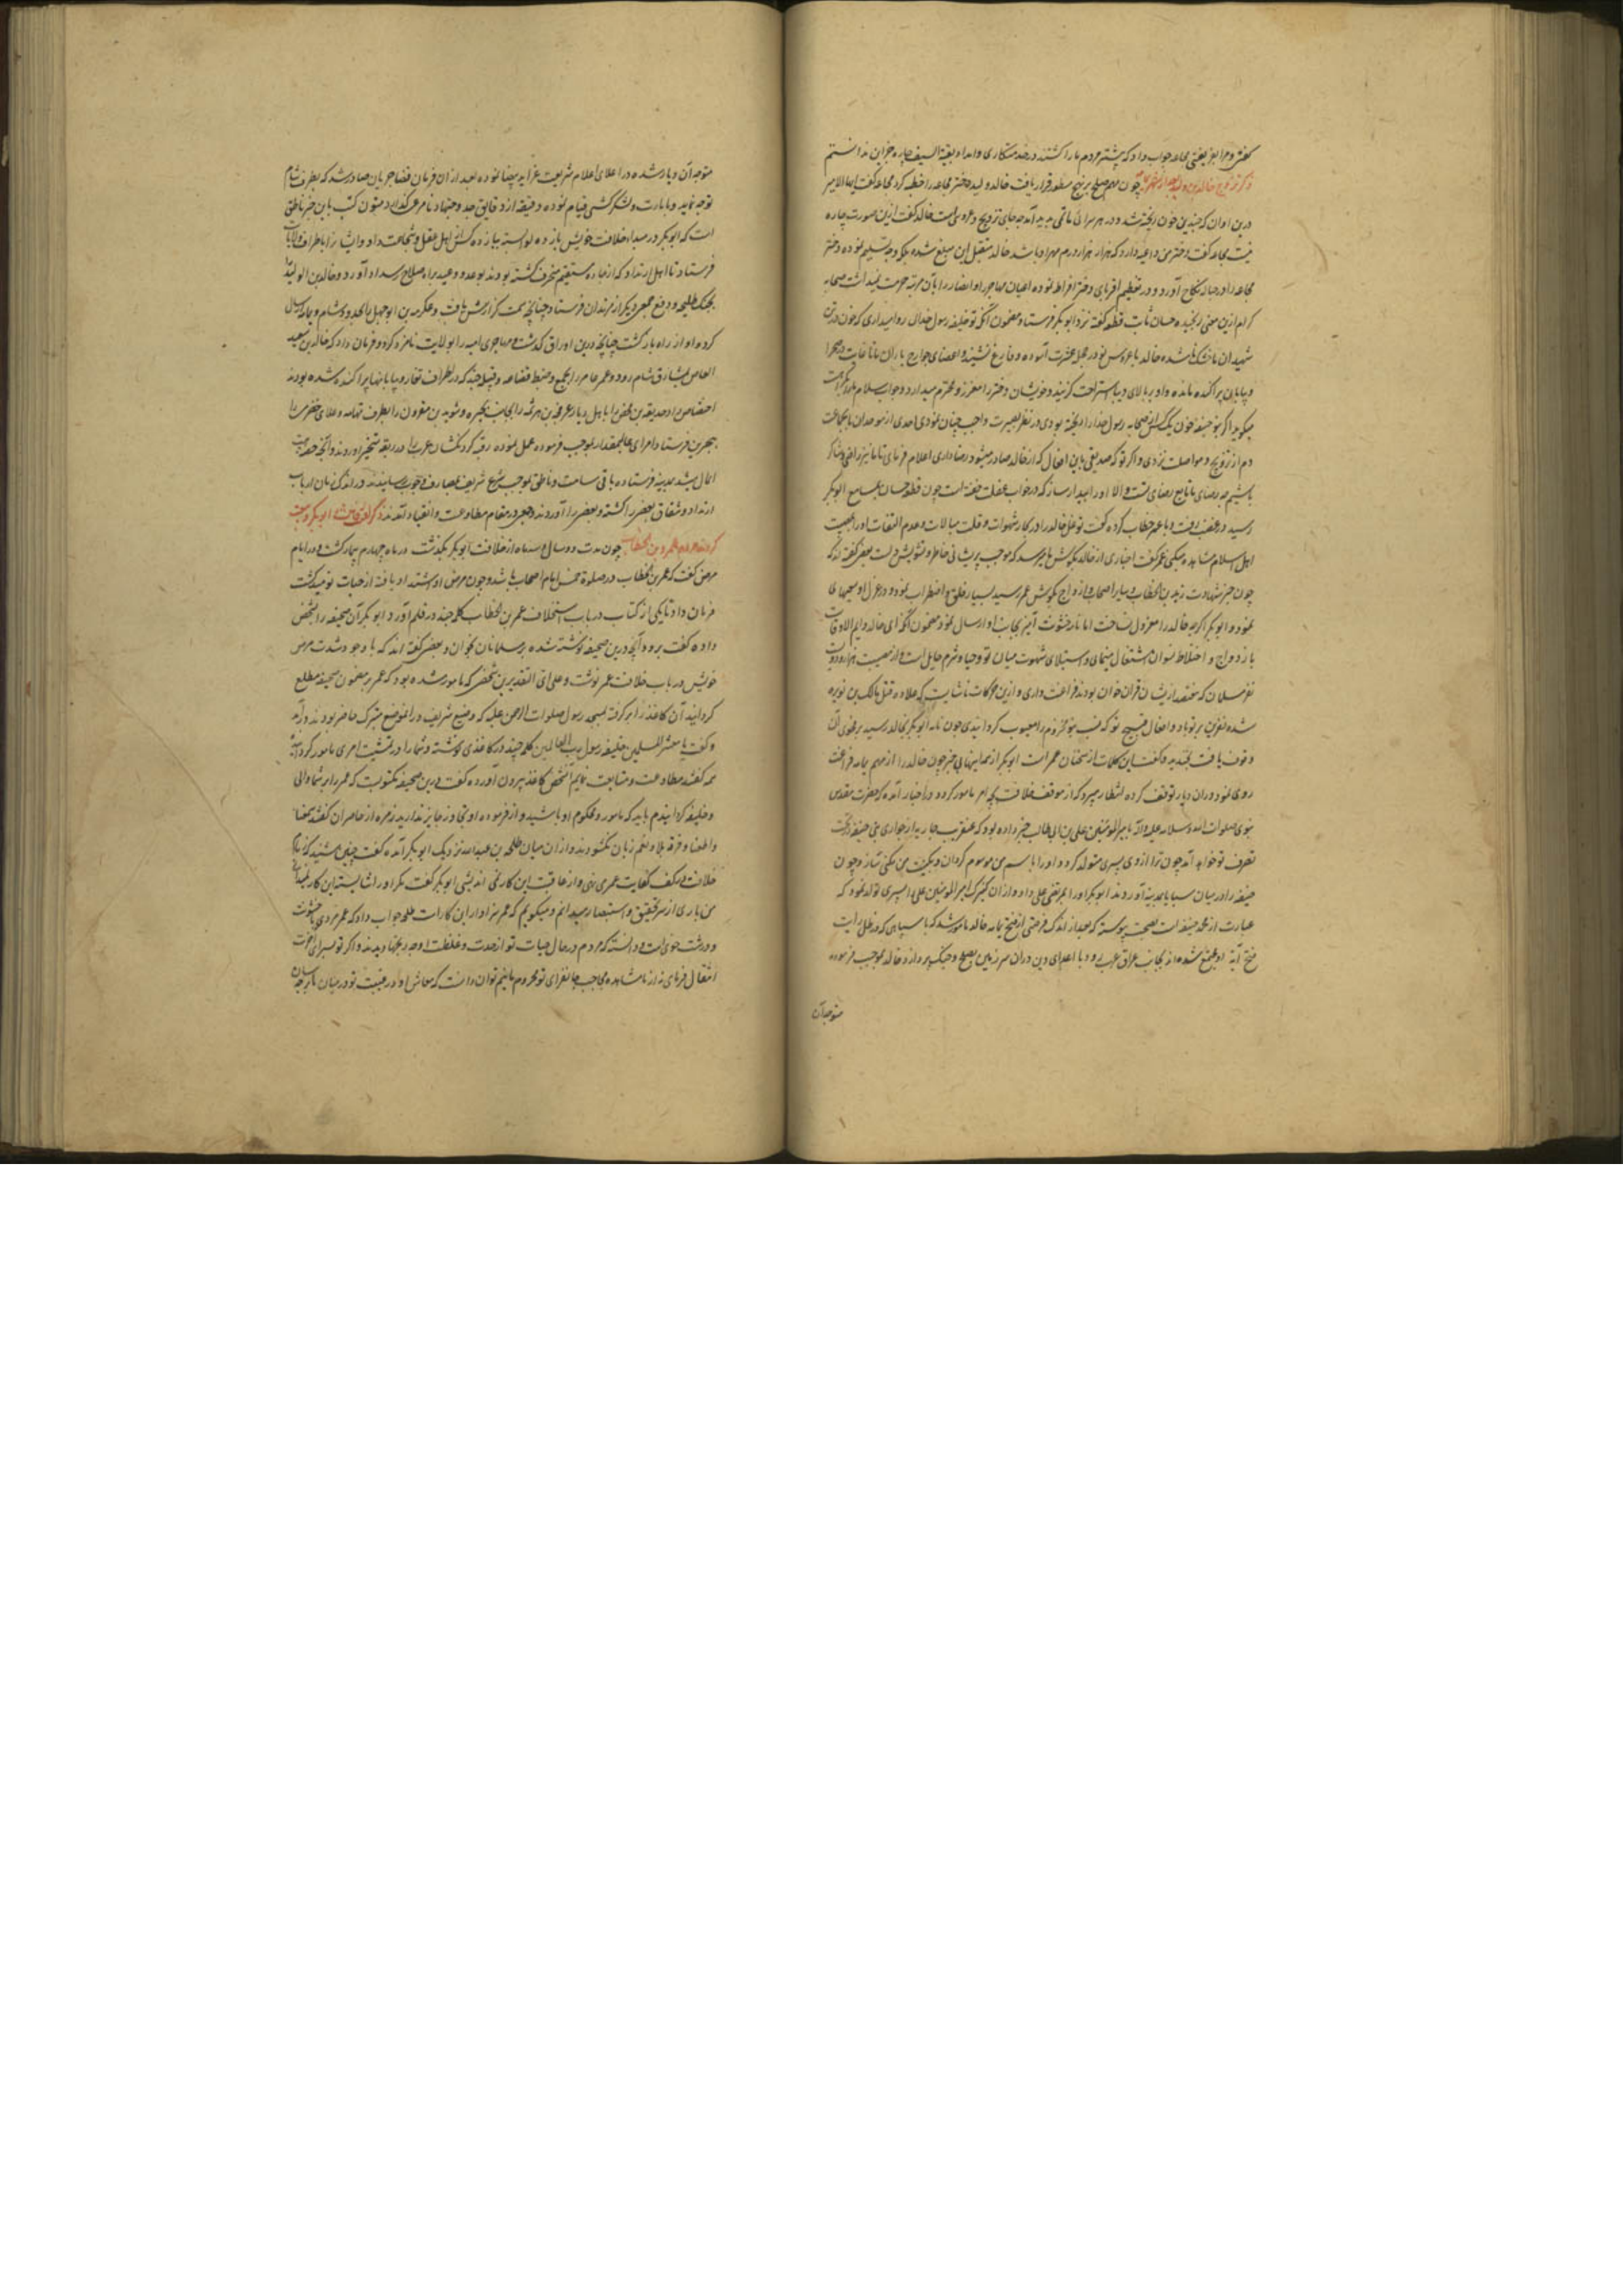 گفتی و مرا بفریفتی مجاعه جواب داد که پیشتر مردم ما را کشتند در صدد رستگاری و امداد بقیة السیف چاره جز این ندانستم
چون مهم صلح بر نهج مسطور قرار یافت خالد ولید دختر مجاعه را خطبه کرد مجاعه گفت ایها الامیر
درین اوان که چندین خون ریخته شد و در هر سرائی ماتمی پدید آمد چه جای تزویج و عروسی است خالد گفت ازین صورت چاره
نیست مجاعه گفت دختر من داعیه دارد که هزار هزار درم مهر او باشد خالد متقبل این مبلغ شده تسلیم نموده و دختر
مجاعه را در حباله نکاح آورد و در تعظیم اقربای دختر افراط نموده اعیان مهاجر و انصار را بآن مرتبه حرمت نمیداشت صحابه
کرام ازین معنی رنجیده حسان ثابت قطعه گفته نزد ابوبکر فرستاد مضمون آنکه تو خلیفه رسول خدائی روا میداری که خون
شهیدان ما خشک ناشده خالد با عروس نو در حجله عشرت آسوده و فارغ نشیند و اعضای جوارح یاران ما
و بیابان پراکنده مانده و او بر بالای دیبا استراحت کند و خویشان دختر را معزز و محترم میدارد و جواب سلام ما
میگوید اگر بنو حنیفه خون یک کس از صحابه رسول خدا را ریخته بودی در نظر بصیرت واجب چنان نمودی احدی از موحدان با مجاعت
دم از تزویج و مواصلت نزدی و اگر تو که صدیقی باین افعال که از خالد صادر میشود رضا داری اعلام فرمای تا ما نیز راضی و شاکر
باشیم چه رضای ما تابع رضای تست و الا او را بیدار ساز که در خواب غفلت خفته است چون قطعه حسان بمسامع ابوبکر
رسید در غضب رفت و با عمر خطاب کرده گفت توغل خالد را در کار شهوات و قلت مبالات و عدم التفات او را بمصیبت
اهل اسلام مشاهده میکنی عمر گفت اخباری از خالد بگوش ما میرسد که موجب پریشانی خاطر و تشویش دل است بعضی گفته اند که
چون خبر شهادت زید بن الخطاب و سایر اصحاب بگوش عمر رسید بسیار قلق و اضطراب نمود و در عزل او سعیهای
نمود و ابوبکر اگرچه خالد را معزول نساخت اما نامه خشونت آمیز بجانب او ارسال نمود مضمون آنکه ای خالد دایم الاوقات
بازدواج و اختلاط نسوان اشتغال مینمای و استیلای شهوت میان تو و حیا و شرم حایل است و از مصیبت هزار و دویست
نفر مسلمان که هفتصد از ایشان قرآن خوان بودند فراغت داری و ازین حرکات ناشایست که علاوه قتل مالک بن نویره
شده نفرین بر تو باد و افعال قبیح تو که نسب بنو مخزوم را معیوب گردانیدی چون نامه ابوبکر بخالد رسید بر فحوی آن
وقوف یافت بخندید و گفت این کلمات از سخنان عمر است ابوبکر ازینها بی خبر چون خالد را از مهم یمامه فراغت
روی نمود در آن دیار توقف کرده انتظار میبرد که از موقف خلافت بچه امر مامور گردد و در اخبار آمده که حضرت مقدس
نبوی صلوات الله و سلامه علیه و آله با امیر المؤمنین علی بن ابی طالب خبر داده بود که عنقریب جاریه از جواری بنی حنیفه بتحت
تصرف تو خواهد آمد چون ترا از وی پسری متولد گردد او را باسم من موسوم گردان و بکنیت من مکنی ساز و چون
حنیفه را در میان سبایا بمدینه آوردند ابوبکر او را بمرتضی علی داد و از آن کنیزک امیر المؤمنین علی را پسری تولد نمود که
عبارت از محمد حنفیه است بصحت پیوسته که بعد از اندک فرصتی از فتح یمامه خالد مامور شد که با سپاهی که در ظل رایت
فتح آیه او مجتمع شده اند بجانب عراق عرب رود و با اعدای دین در آن سرزمین بصلح و جنگ پردازد خالد بموجب فرموده
متوجه آن
متوجه آن دیار شده در اعلای اعلام شریعت غرا ید بیضا نموده بعد از آن فرمان قضا جریان صادر شد که بطرف شام
توجه نماید و بامارت و لشکر کشی قیام نموده دقیقه از دقایق جد و اجتهاد نامرعی نگذارد متون کتب باین خبر ناطق
است که ابوبکر در مبداء خلافت خویش یازده لوا بسته بیازده کس از اهل عقل و شجاعت داد و ایشانرا باطراف ولایات
فرستاد تا اهل ارتداد که از جاده مستقیم منحرف گشته بودند بوعد و وعید براه صلاح و سداد آورد و خالد بن الولید را
بجنگ طلیحه و دفع جمعی دیگر از مرتدان فرستاد چنانچه سمت گزارش یافت و عکرمه بن ابوجهل را
کرده او از راه بازگشت چنانچه درین اوراق گذشت و مهاجر بن امیه را بولایت نامزد کرد و فرمان داد که خالد بن سعید
العاص بمشارق شام رود و عمرو عاص را بجمع و ضبط قضاعه و قبیله چند که در اطراف قفار و بیابانها پراکنده شده بودند
اختصاص داد حذیفه بن محصن را باهل دیار عرفجه بن هرثمه را بجانب بحیره و سوید بن مقرون را بطرف تهامه و علای حضرمی را
ببحرین فرستاد امرای عالیمقدار بموجب فرموده عمل نموده رقبه گردنکشان عرب را در ربقه تسخیر آوردند و آنچه حصه بیت
المال میشد بمدینه فرستاده باقی صامت و ناطق بموجب شرع شریف بمصارف وجوب رسانیدند در اندک زمان ارباب
ارتداد و شقاق بعضی را کشته و بعضی را آوردند و جمعی در مقام مطاوعت و انقیاد آمدند
چون مدت دو سال و سه ماه از خلافت ابوبکر بگذشت در ماه چهارم بیمار گشت و در ایام
مرض گفت که عمر بن الخطاب در صلوة خمس امام اصحاب باشد و چون مرض او اشتداد یافته از حیات نومید گشت
فرمان داد تا یکی از کتاب در باب استخلاف عمر بن الخطاب کلمه چند در قلم آورد ابوبکر آن صحیفه را بشخصی
داده گفت برو و آنچه درین صحیفه نوشته شده بر مسلمانان بخوان و بعضی گفته اند که با وجود شدت مرض
خویش در باب خلافت عمر نوشت و علی ای التقدیرین شخصی که مامور شده بود که عمر بر مضمون صحیفه مطلع
گرداند آن کاغذ را برگرفته بمسجد رسول صلوات الرحمن علیه که وضیع و شریف در آن موضع متبرک حاضر بودند درآمد
و گفت یا معشر المسلمین خلیفه رسول رب العالمین کلمه چند در کاغذی نوشته و شما را در تمشیت امری مامور گردانیده
همه گفتند مطاوعت و متابعت نمایم آن شخص کاغذ بیرون آورده گفت درین صحیفه مکتوبست که عمر را بر شما والی
و خلیفه گردانیدم باید که مامور و محکوم او باشید و از فرموده او تجاوز جایز ندارید زمره از حاضران گفتند سمعنا
و اطعنا و فرقه بلا و نعم زبان نگشودند و از آن میان طلحه بن عبدالله نزدیک ابوبکر آمده گفت چنین میشنوم که زمام
خلافت در کف کفایت عمر می نهی و از عاقبت این کار نمی اندیشی ابوبکر گفت مگر او را شایسته این کار نمیدانی
من باری از سر تحقیق و استبصار میدانم و میگویم که عمر سزاوار این کار است طلحه جواب داد که عمر مردی با خشونت
و درشت خوی است و دانسته که مردم در حال حیات تو از حدت و غلظت او چه رنجها دیدند و اگر تو بسرای آخرت
انتقال فرمای و از ما مشاهده جانفزای تو محروم مانیم توان دانست که معاش او در غیبت تو در میان ما بر چه